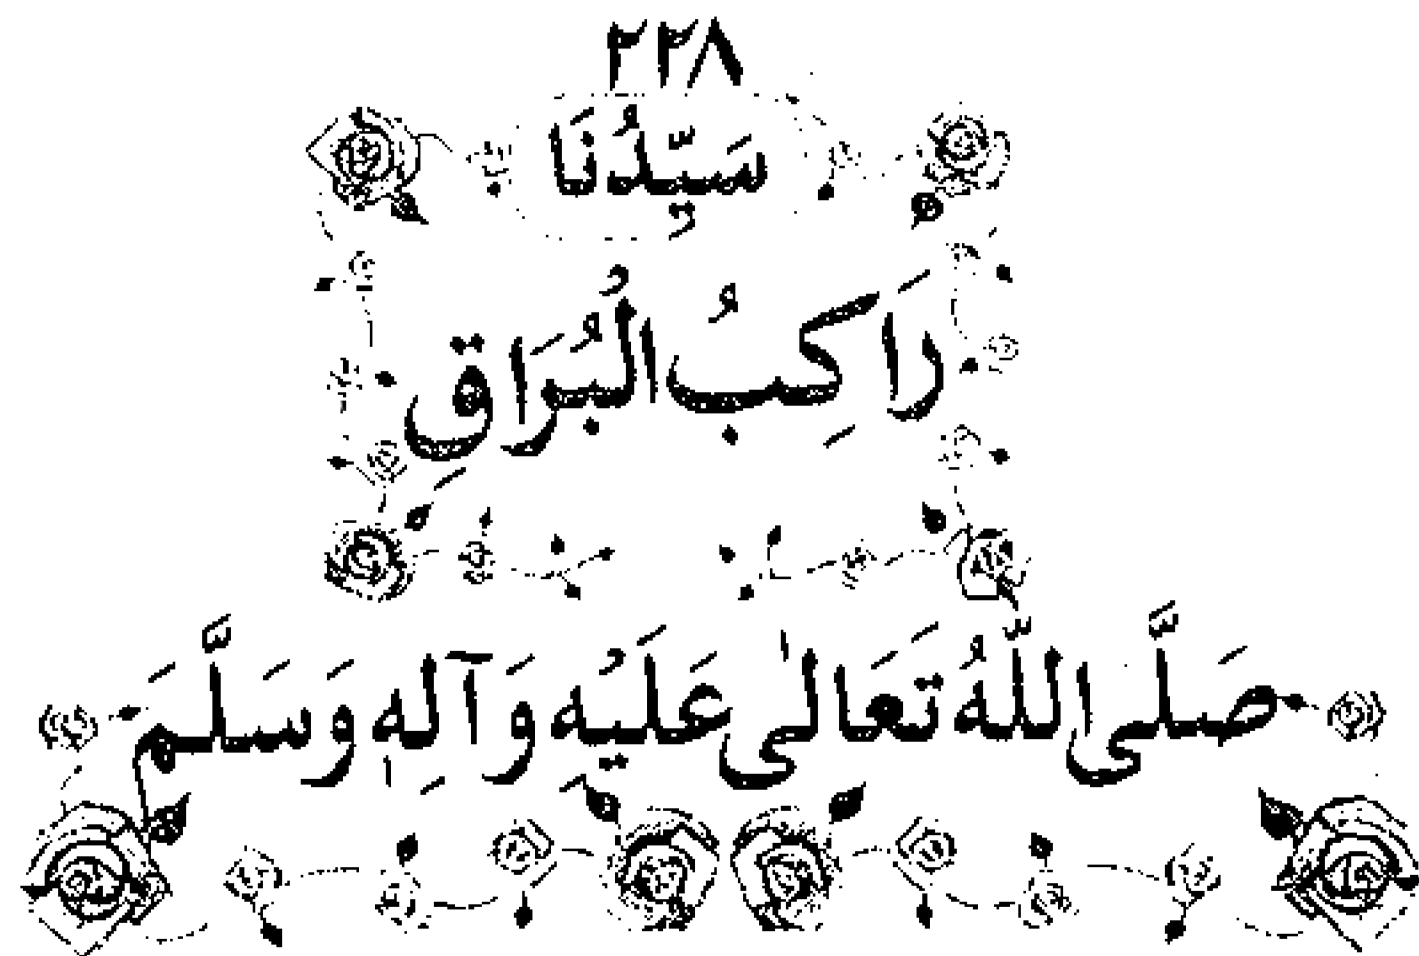 ٢٢٨
سَيِّدُنَا
رَاكِبُ الْبُرَاقِ
صَلَّى اللّٰهُ تَعَالٰى عَلَيْهِ وَآلِهٖ وَسَلَّمَ